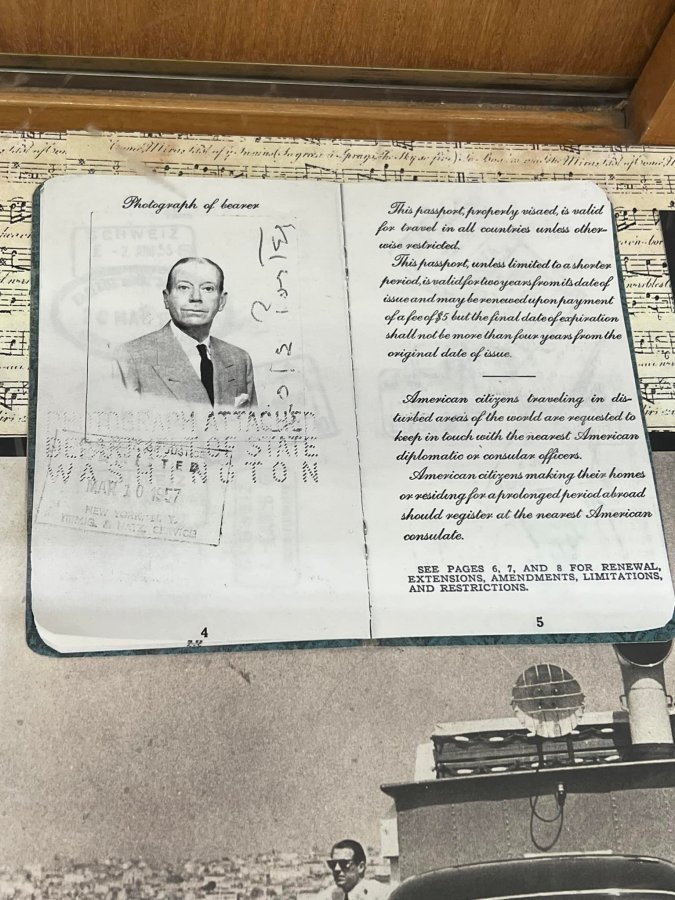 Photograph of bearer
SCHWEIZ
PHOTOGRAPH ATTACHED
DEPARTMENT OF STATE
WASHINGTON
MAR 10 1957
NEW YORK, N. Y.
IMMIG. & NATZ. SERVICE
4
This passport, properly visaed, is valid
for travel in all countries unless other-
wise restricted.
This passport, unless limited to a shorter
period, is valid for two years from its date of
issue and may be renewed upon payment
of a fee of $5 but the final date of expiration
shall not be more than four years from the
original date of issue.
American citizens traveling in dis-
turbed areas of the world are requested to
keep in touch with the nearest American
diplomatic or consular officers.
American citizens making their homes
or residing for a prolonged period abroad
should register at the nearest American
consulate.
SEE PAGES 6, 7, AND 8 FOR RENEWAL,
EXTENSIONS, AMENDMENTS, LIMITATIONS,
AND RESTRICTIONS.
5